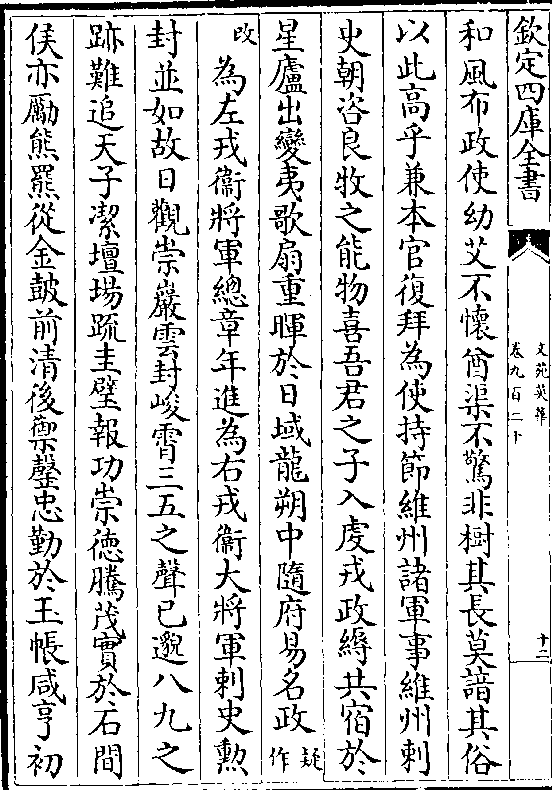 欽定四庫全書
文苑英華
卷九百二十
十二
和風布政使幼艾不懷酋渠不驚非樹其長莫諳其俗
以此高乎兼本官復拜為使持節維州諸軍事維州刺
史朝咨良牧之能物喜吾君之子入虔戎政縟共宿於
星廬出變夷歌扇重暉於日域龍朔中隨府易名政疑作
改為左戎衛將軍總章年進為右戎衛大將軍刺史勲
封並如故日觀崇巖雲封峻霄三五之聲已邈八九之
跡難追天子潔壇場疏圭璧報功崇徳騰茂實於石間
侯亦勵熊羆從金鼓前清後禦罄忠勤於玉帳咸亨初